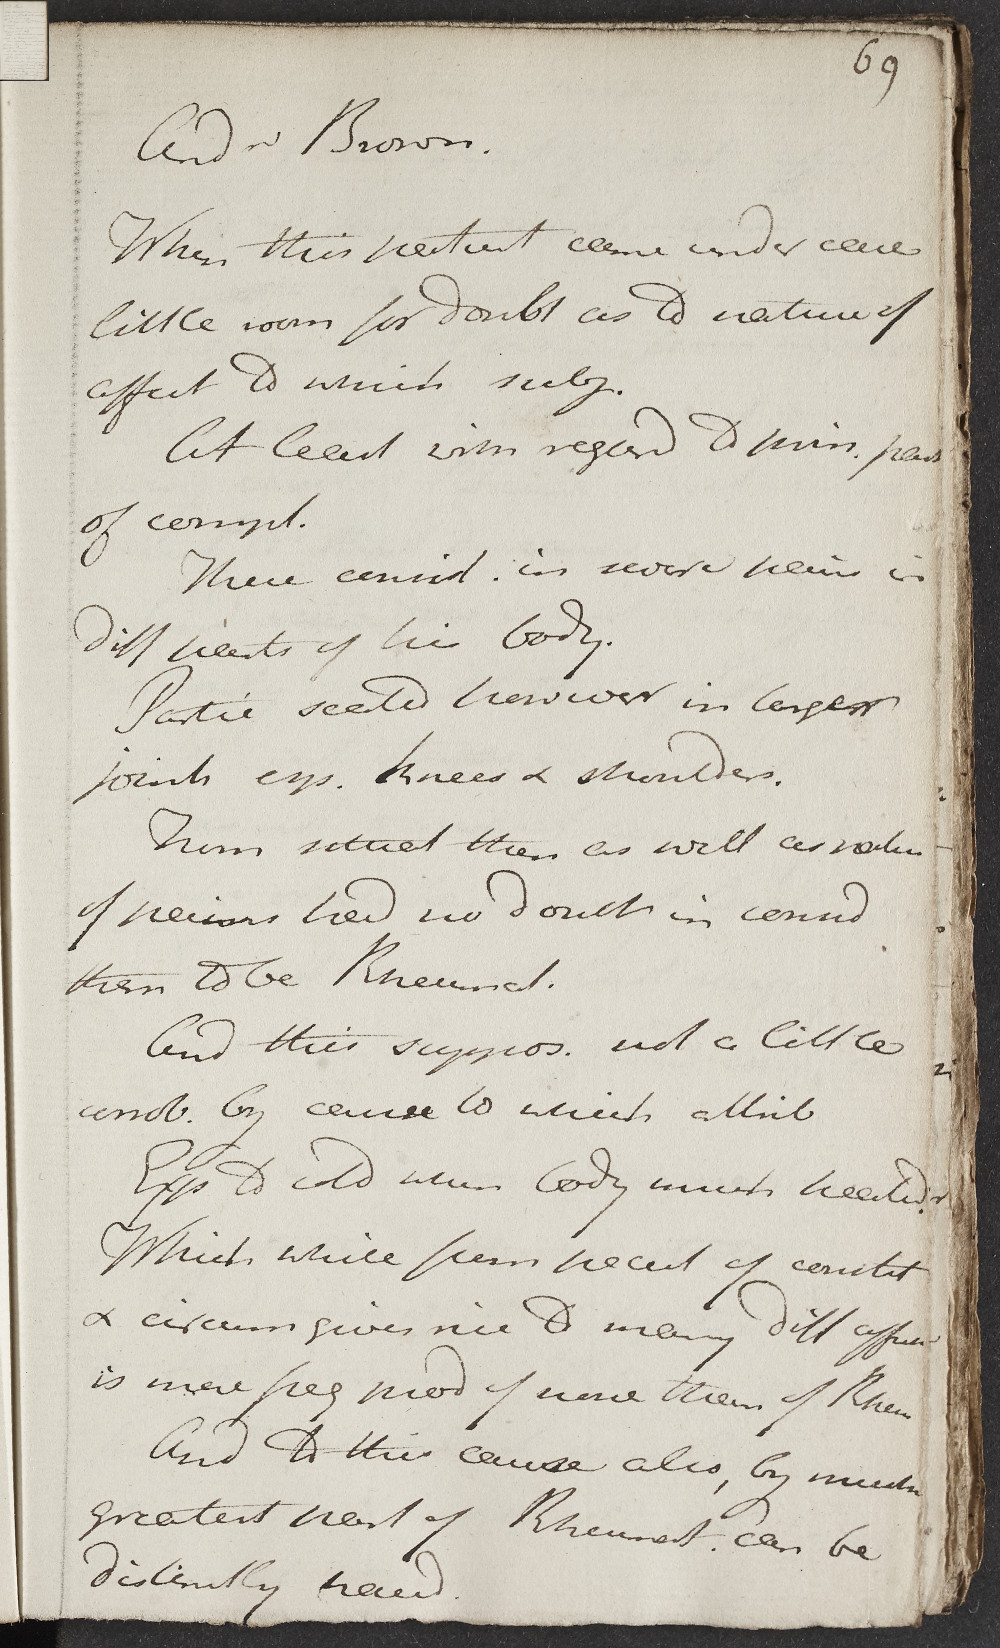 69
Andw Brown.
When this patient came under care
little room for doubt as to nature of
affect to which subj.
At least with regard to prin. part
of compl.
These consist. in severe pains in
diff parts of his body.
Partic seated however in larger
joints esp. knees & shoulders.
From situat then as well as natur
of pains had no doubt in consid
them to be Rheumat.
And this suppos. not a little
corrob. by cause to which attrib
Exps to cold when body much heated.
Which while from pecul of constit
& circum gives rise to many diff affec
is more freq prod of none than of Rheu
And to this cause also, by much
greatest part of Rheumat. can be
distinctly traced.